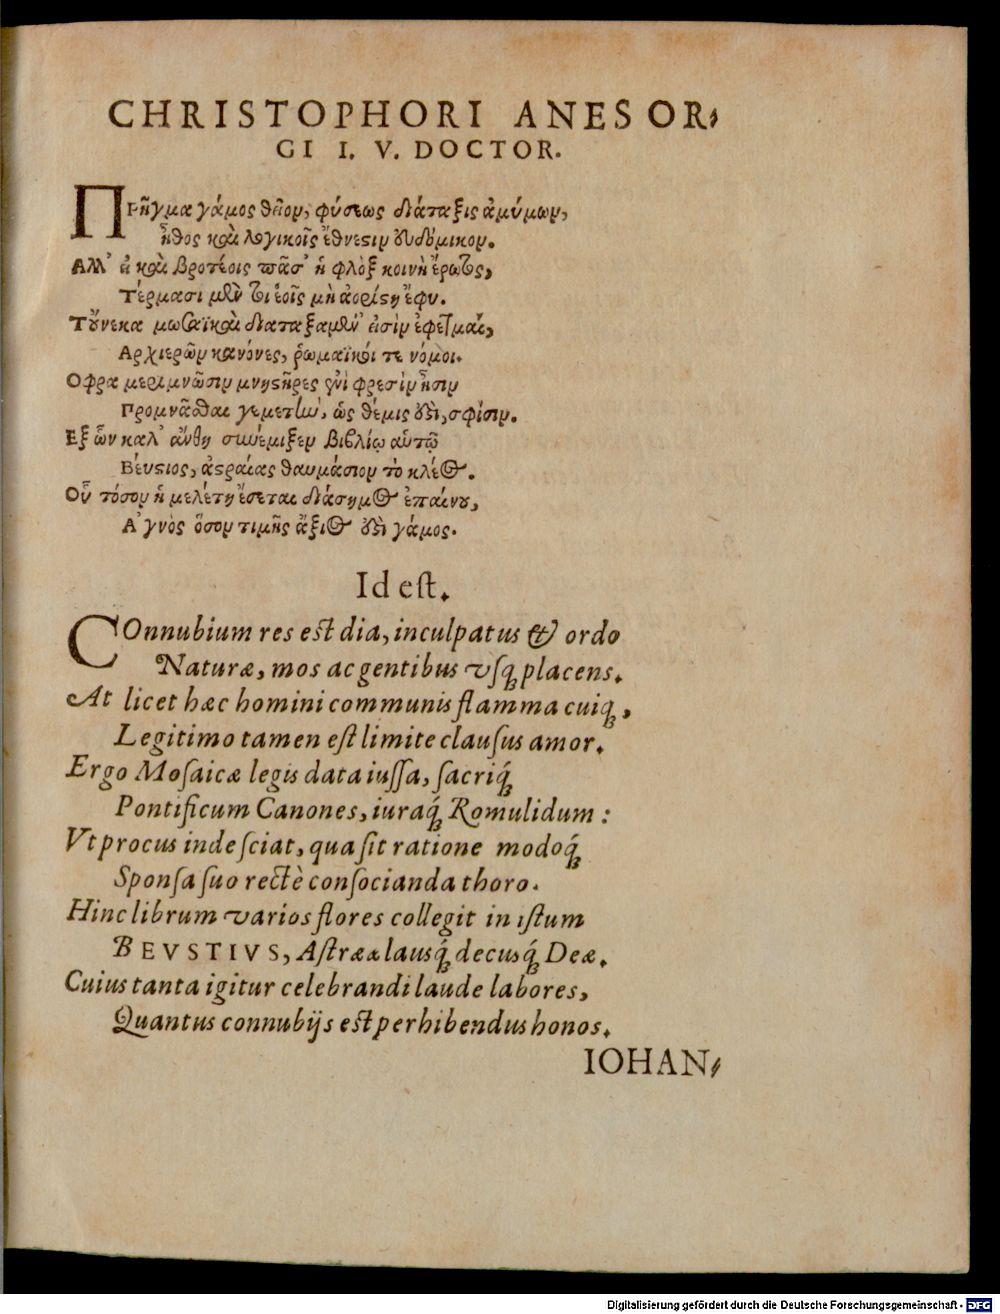 CHRISTOPHORI ANESOR⸗
GI I. V. DOCTOR.
ΠΡῆγμα γάμος θεῖον, φύσεως διάταξις ἀμύμων,
ἦθος καὶ λογικοῖς ἔθνεσιν
Αλλ' εἰ καὶ βροτέοις πᾶσ' ἡ φλὸξ κοινὴ ἔρωτος,
Τέρμασι μὲν μὴ ἀορίστη ἔφυ.
Τοὔνεκα μωσαϊκαὶ διαταξαμέν' εἰσὶν ἐφετμαὶ,
Αρχιερῶν κανόνες, ῥωμαϊκοί τε νόμοι.
Οφρα μεριμνῶσιν μνηστῆρες ἐνὶ φρεσὶν ᾗσιν
Προμνᾶσθαι γεμετὴν, ὡς θέμις ἐστὶ, σφίσιν.
Εξ ὧν καλ' ἄνθη συνέμιξεν βιβλίῳ αὑτῷ
Βέυστιος, ἀστραίας θαυμάσιον τὸ κλέος.
Οὗ τόσον ἡ μελέτη ἔσεται διάσημος ἐπαίνου,
Α'γνὸς ὅσον τιμῆς ἄξιος ἐστὶ γάμος.
Id est.
COnnubium res est dia, inculpatus & ordo
Naturæ, mos ac gentibus vsq́ placens.
At licet hæc homini communis flamma cuiq́,
Legitimo tamen est limite clausus amor.
Ergo Mosaicæ legis data iussa, sacriq́
Pontificum Canones, iuraq́ Romulidum:
Vt procus inde sciat, qua sit ratione modoq́
Sponsa suo rectè consocianda thoro.
Hinc librum varios flores collegit in istum
BEVSTIVS, Astrææ lausq́ decusq́ Deæ.
Cuius tanta igitur celebrandi laude labores,
Quantus connubijs est perhibendus honos.
IOHAN⸗
Digitalisierung gefördert durch die Deutsche Forschungsgemeinschaft - DFG